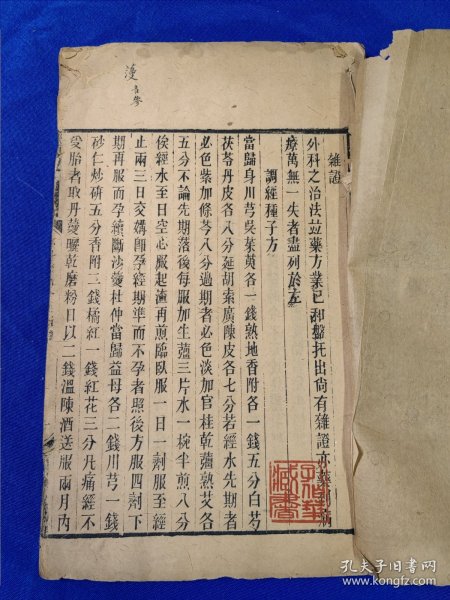 漫
雜證
外科之治法並藥方業已和盤托出尚有雜證亦藥到病
療萬無一失者盡列於左
調經種子方
當歸身川芎吳茱萸各一錢熟地香附各一錢五分白芍
茯苓丹皮各八分延胡索廣陳皮各七分若經水先期者
必色紫加條芩八分過期者必色淡加官桂乾薑熟艾各
五分不論先期落後每服加生薑三片水一椀半煎八分
俟經水至日空心服起渣再煎臨臥服一日一劑服至經
止兩三日交媾卽孕經期準而不孕者照後方服四劑下
期再服而孕續斷沙薓杜仲當歸益母各二錢川芎一錢
砂仁炒硏五分香附三錢橘紅一錢紅花三分凡痛經不
受胎者取丹薓曬乾磨粉日以二錢溫陳酒送服兩月內
藏書
孔夫子旧书网
https://book.kongfz.com/